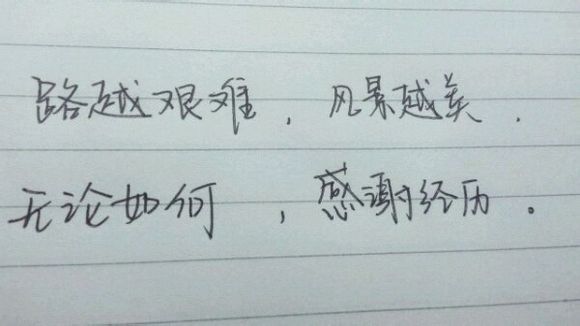 路越艰难，风景越美．
无论如何，感谢经历。